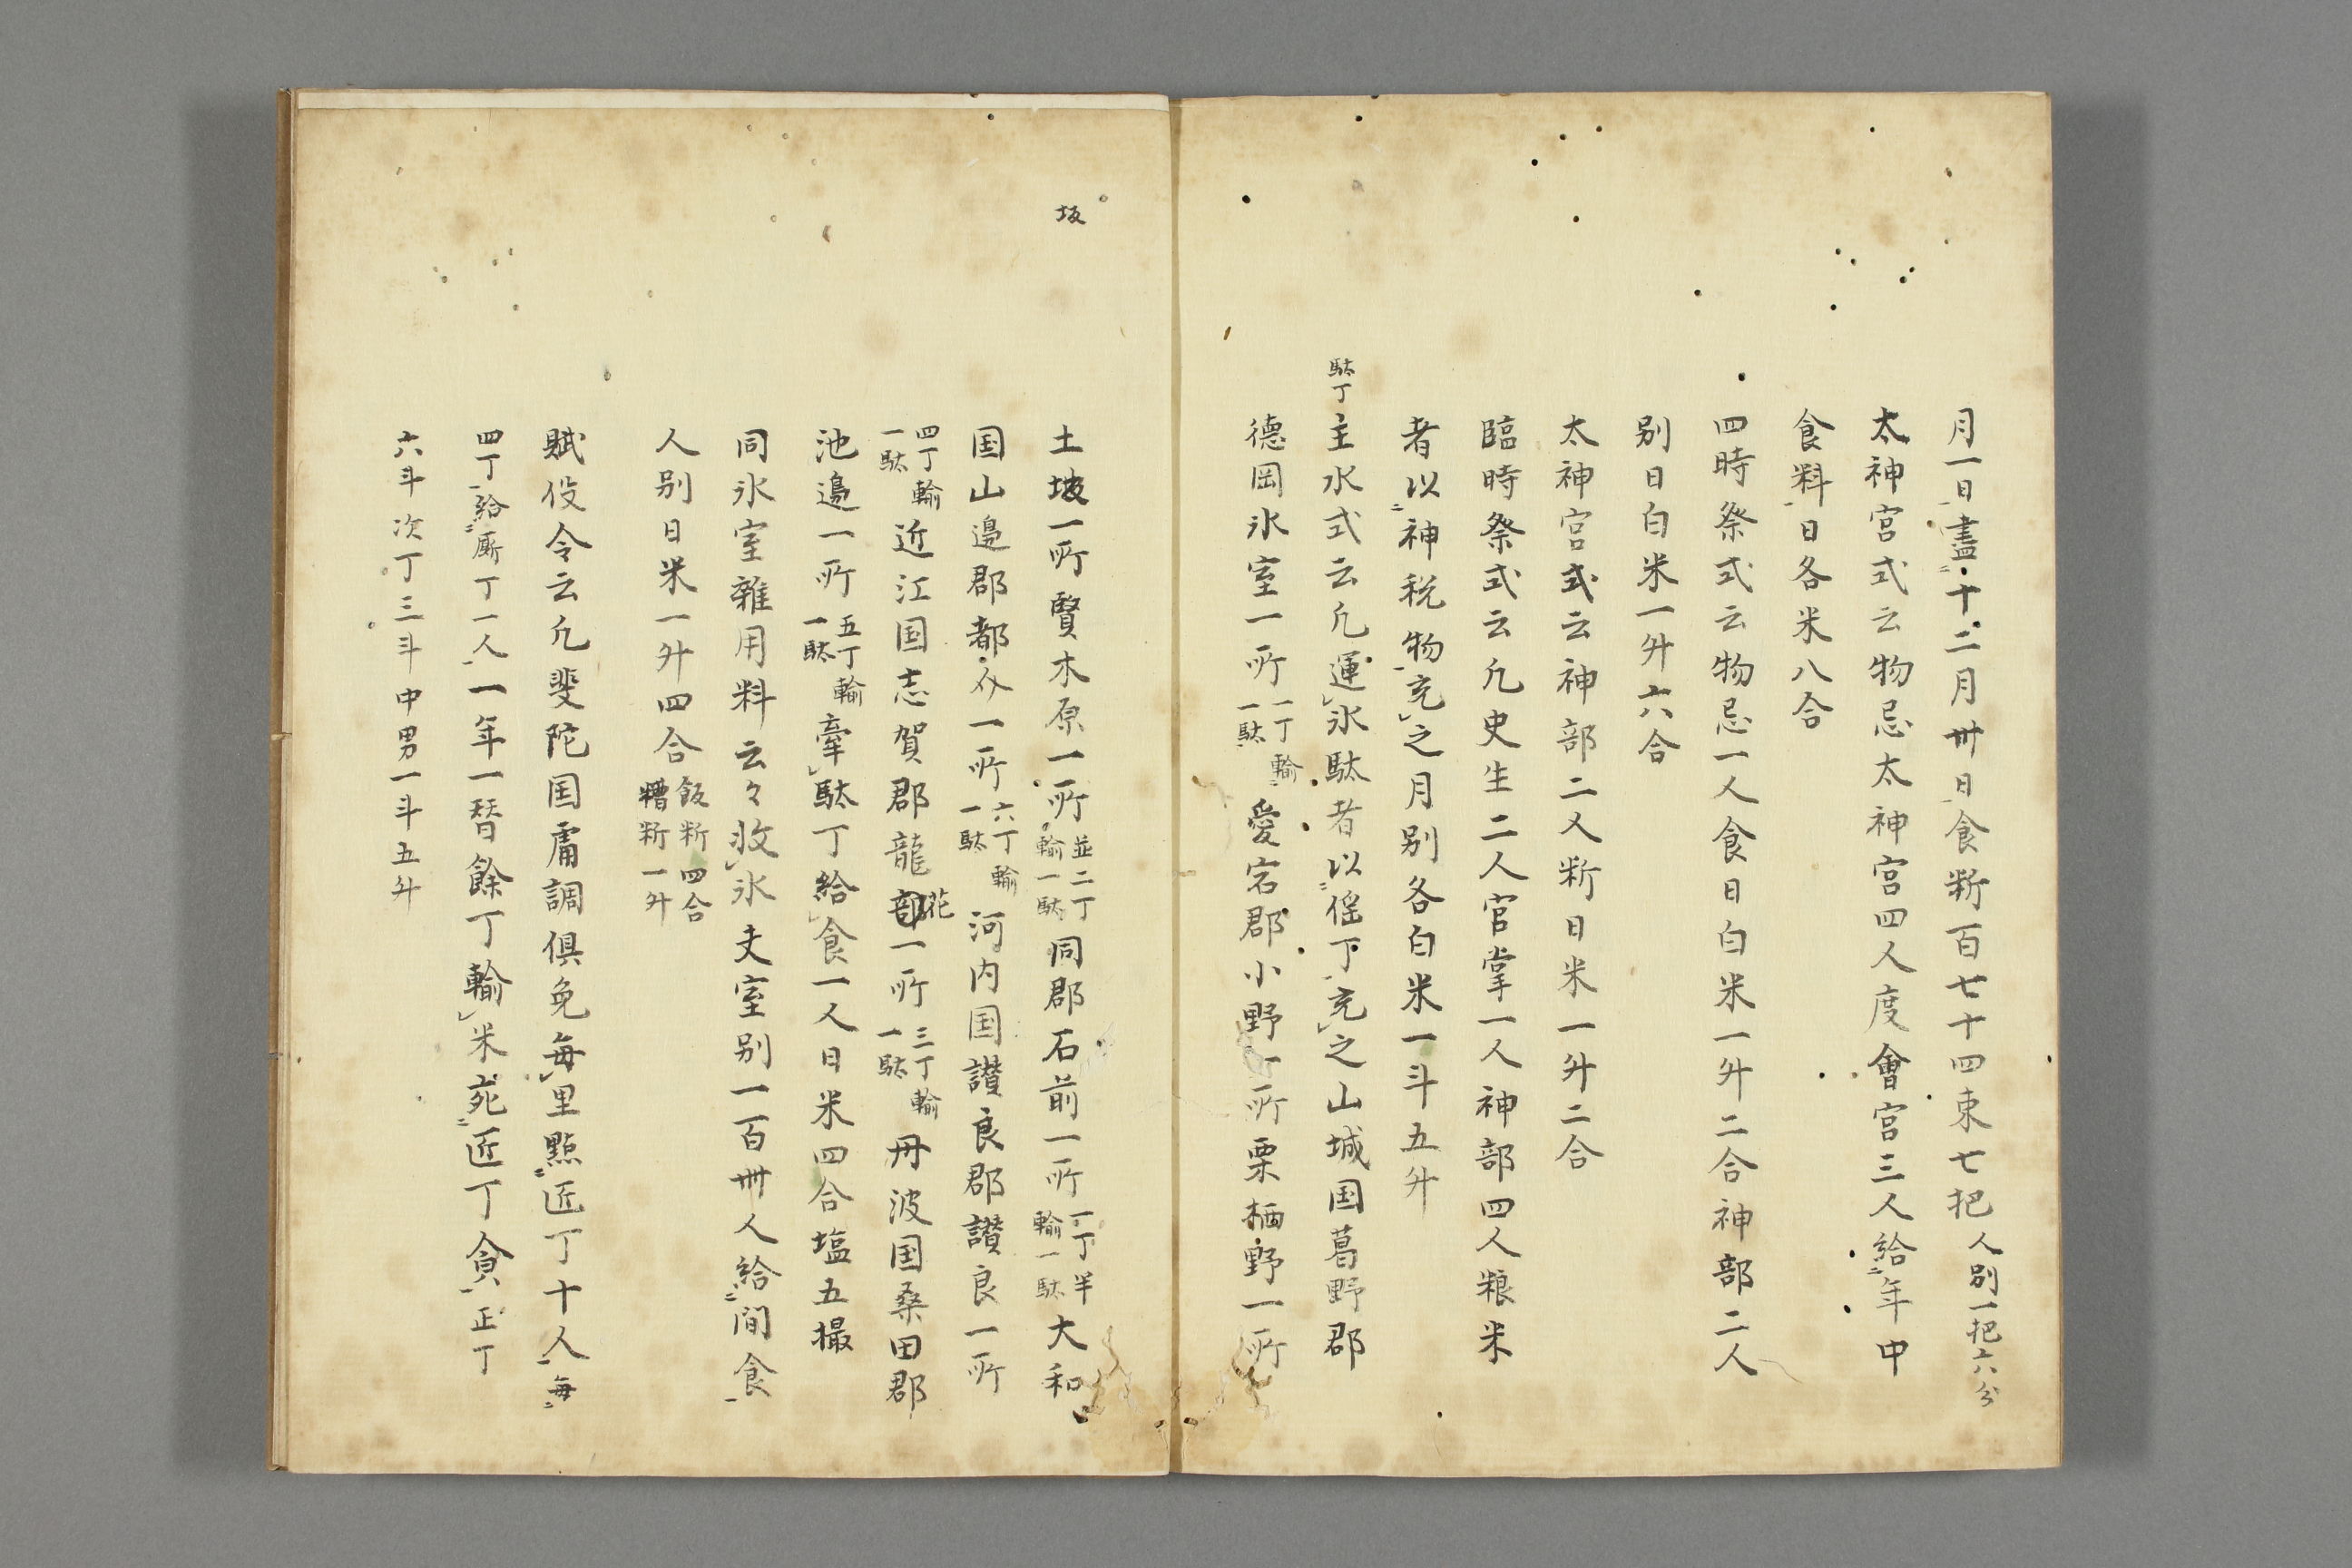 月一日盡十二月卅日食斯百七十四束七把人別一把六分
太神宮式云物忌太神宮四人度會宮三人給年中
食料日各米八合
四時祭式云物忌一人食日白米一升二合神部二人
別日白米一升六合
太神宮式云神部二人斯日米一升二合
臨時祭式云凡史生二人官掌一人神部四人粮米
者以神税物充之月別各白米一斗五升
駄丁
主水式云凡運氷駄者以徭丁充之山城国葛野郡
徳岡氷室一所一丁輸一駄愛宕郡小野一所栗栖野一所
坂
土坡一所賢木原一所並二丁輸一駄同郡石前一所一丁半輸一駄大和
国山邉郡都介一所六丁輸一駄河内国讃良郡讃良一所
四丁輸一駄近江国志賀郡龍部花一所三丁輸一駄丹波国桑田郡
池邉一所五丁輸一駄牽駄丁給食一人日米四合塩五撮
同氷室雜用料云々収氷夫室別一百卅人給間食
人別日米一升四合飯斯四合糟斯一升
賦役令云凡斐陀国庸調倶免毎里點匠丁十人毎
四丁給厮丁一人一年一替餘丁輸米宛匠丁食正丁
六斗次丁三斗中男一斗五升